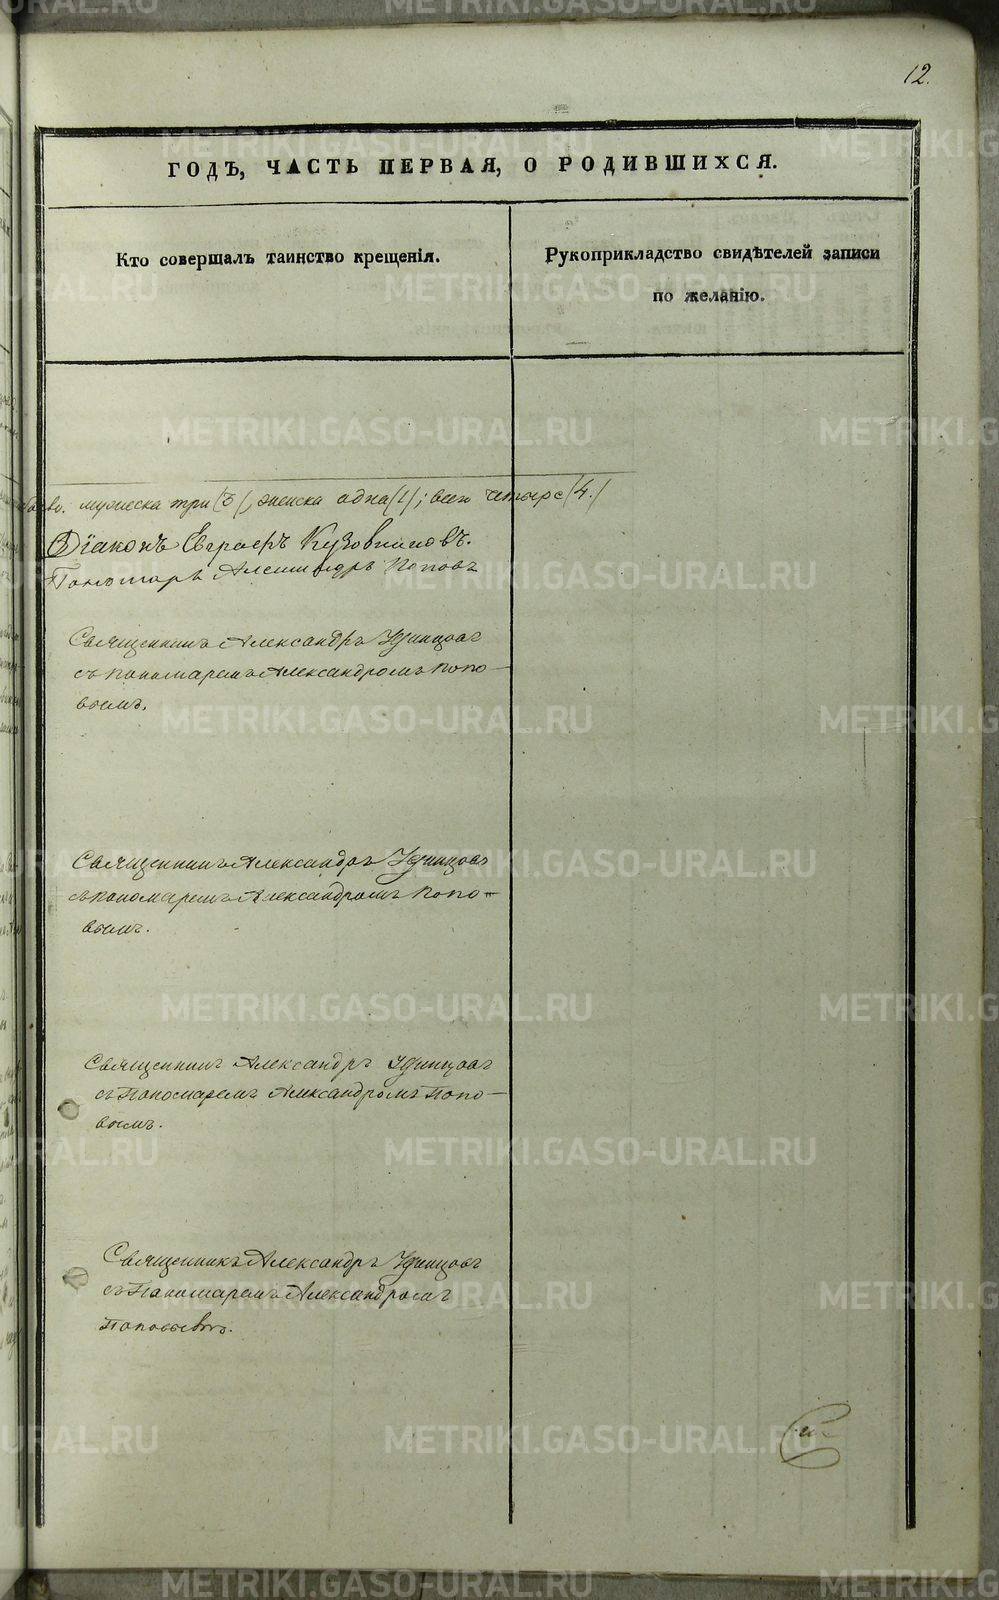 12.
ГОДЪ, ЧАСТЬ ПЕРВАЯ, О РОДИВШИХСЯ.
Кто совершалъ таинство крещенія.
Рукоприкладство свидѣтелей записи
по желанію.
мужеска три (3), женска одна (1); всего четыре (4.)
Діаконъ Евграфъ Кузовниковъ.
Пономарь Александръ Поповъ
Священникъ Александръ Удинцовъ
съ пономаремъ Александромъ Попо-
вымъ.
Священникъ Александръ Удинцовъ
съ пономаремъ Александромъ Попо-
вымъ.
Священникъ Александръ Удинцовъ
съ Пономаремъ Александромъ Попо-
вымъ.
Священникъ Александръ Удинцовъ
съ Пономаремъ Александромъ
Поповымъ.
METRIKI.GASO-URAL.RU